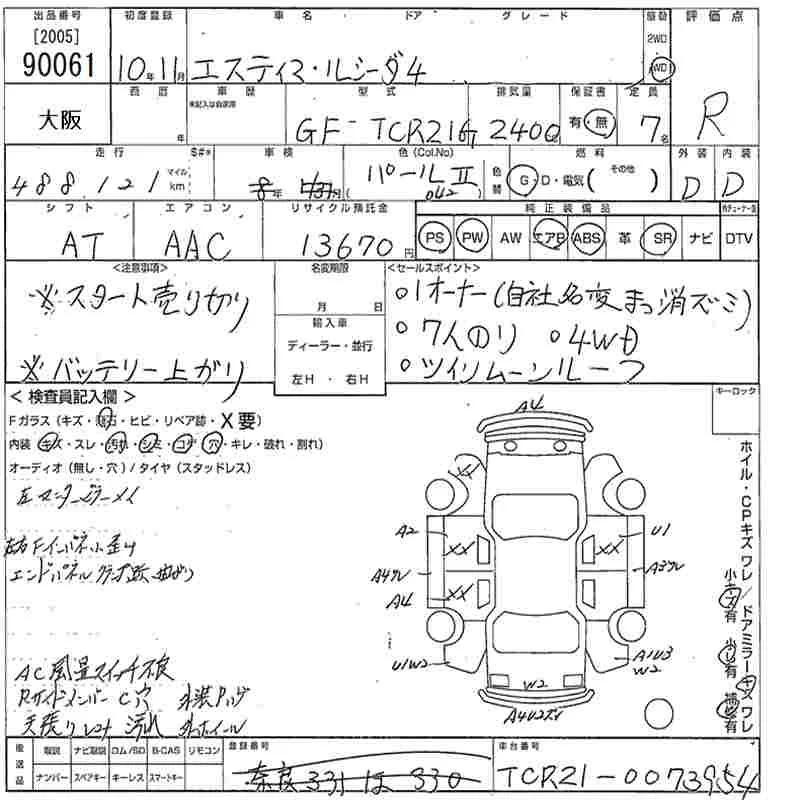 出品番号 初度登録 車名 ドア グレード 駆動 評価点
[2005] 90061 10年11月 エスティマ・ルシーダ4 2WD 4WD R
大阪 西暦 年 車歴 未記入は自家用 型式 排気量 保証書 定員
GF-TCR21G 2400cc 有・無 7名
走行 $#* 車検 色(Col.No) 燃料 外装 内装
488,121 マイル km 8年 パールⅡ (042) 色替 G・D・電気( その他 ) D D
シフト エアコン リサイクル預託金 純正装備品
AT AAC 13670円 PS PW AW エアB ABS 革 SR ナビ DTV
<注意事項> 名変期限 <セールスポイント>
※スタート売り切り 月 日 ○1オーナー(自社名変まっ消ズミ)
輸入車 ○7人のり ○4WD
ディーラー・並行
※バッテリー上がり 左H・右H ○ツインムーンルーフ
<検査員記入欄> キーロック
Fガラス(キズ・飛石・ヒビ・リペア跡・X要)
内装(キズ・スレ・汚れ・シミ・コゲ・穴・キレ・破れ・割れ)
オーディオ(無し・穴)/タイヤ(スタッドレス)
左センターピラーメイ
エンドパネル
AC風量スイッチ不良
Rサイドメンバー C穴
天張り 汚れ 外ホイール
A4
XX
A2 XX XX U1
A4 XX
U1W2 A1U3 W2
W2
ホイル・CPキズワレ/ドアミラーキズワレ
小キズ有
後送品 取説 ナビ取説 ロム/SD B-CAS リモコン 登録番号 車台番号
ナンバー スペアキー キーレス スマートキー 奈良 331 ほ 830 TCR21-0073954